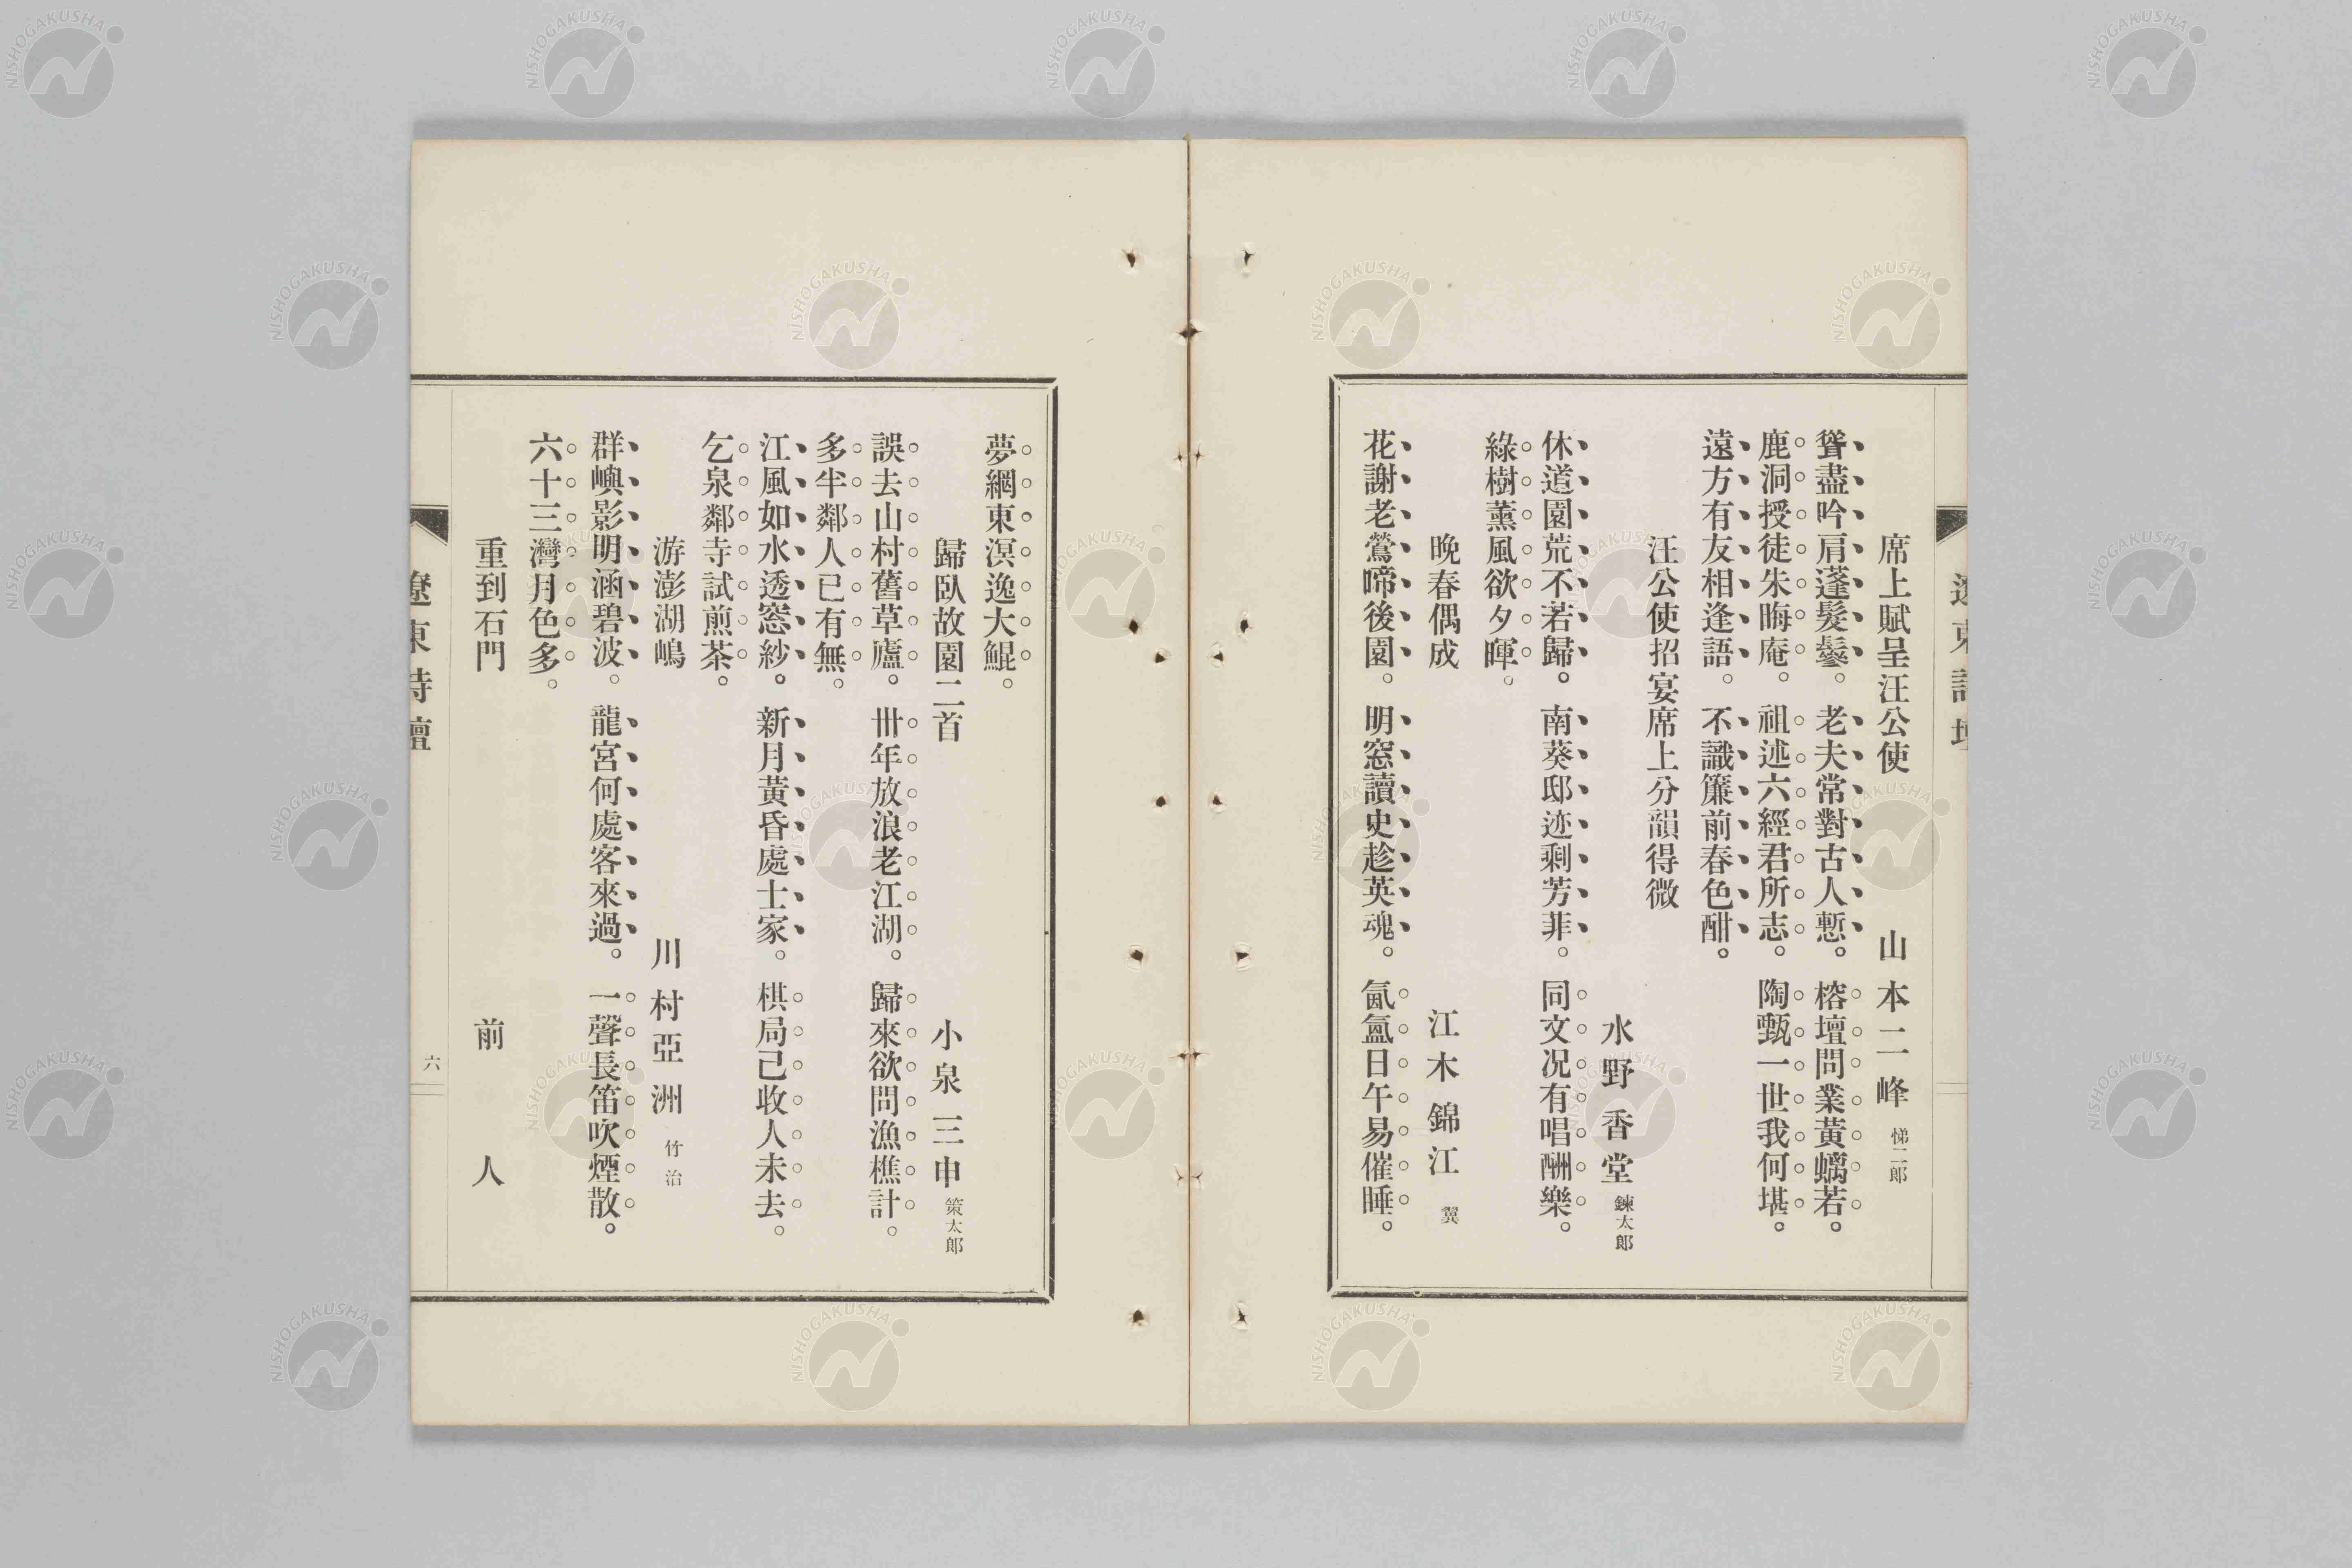 遼東詩壇
席上賦呈汪公使　山本二峰 悌二郎
聳盡吟肩蓬髮鬖。老夫常對古人慙。榕壇問業黃蠣若。
鹿洞授徒朱晦庵。祖述六經君所志。陶甄一世我何堪。
遠方有友相逢語。不識簾前春色酣。
汪公使招宴席上分韻得微
水野香堂 鍊太郎
休道園荒不若歸。南葵邸迹剩芳菲。同文况有唱酬樂。
綠樹薰風欲夕暉。
晚春偶成　江木錦江 翼
花謝老鶯啼後園。明窓讀史趁英魂。氤氳日午易催睡。
夢網東溟逸大鯤。
歸臥故園二首　小泉三申 策太郎
誤去山村舊草廬。卅年放浪老江湖。歸來欲問漁樵計。
多半鄰人已有無。
江風如水透窓紗。新月黃昏處士家。棋局已收人未去。
乞泉鄰寺試煎茶。
游澎湖嶋　川村亞洲 竹治
群嶼影明涵碧波。龍宮何處客來過。一聲長笛吹煙散。
六十三灣月色多。
重到石門　前人
遼東詩壇
六